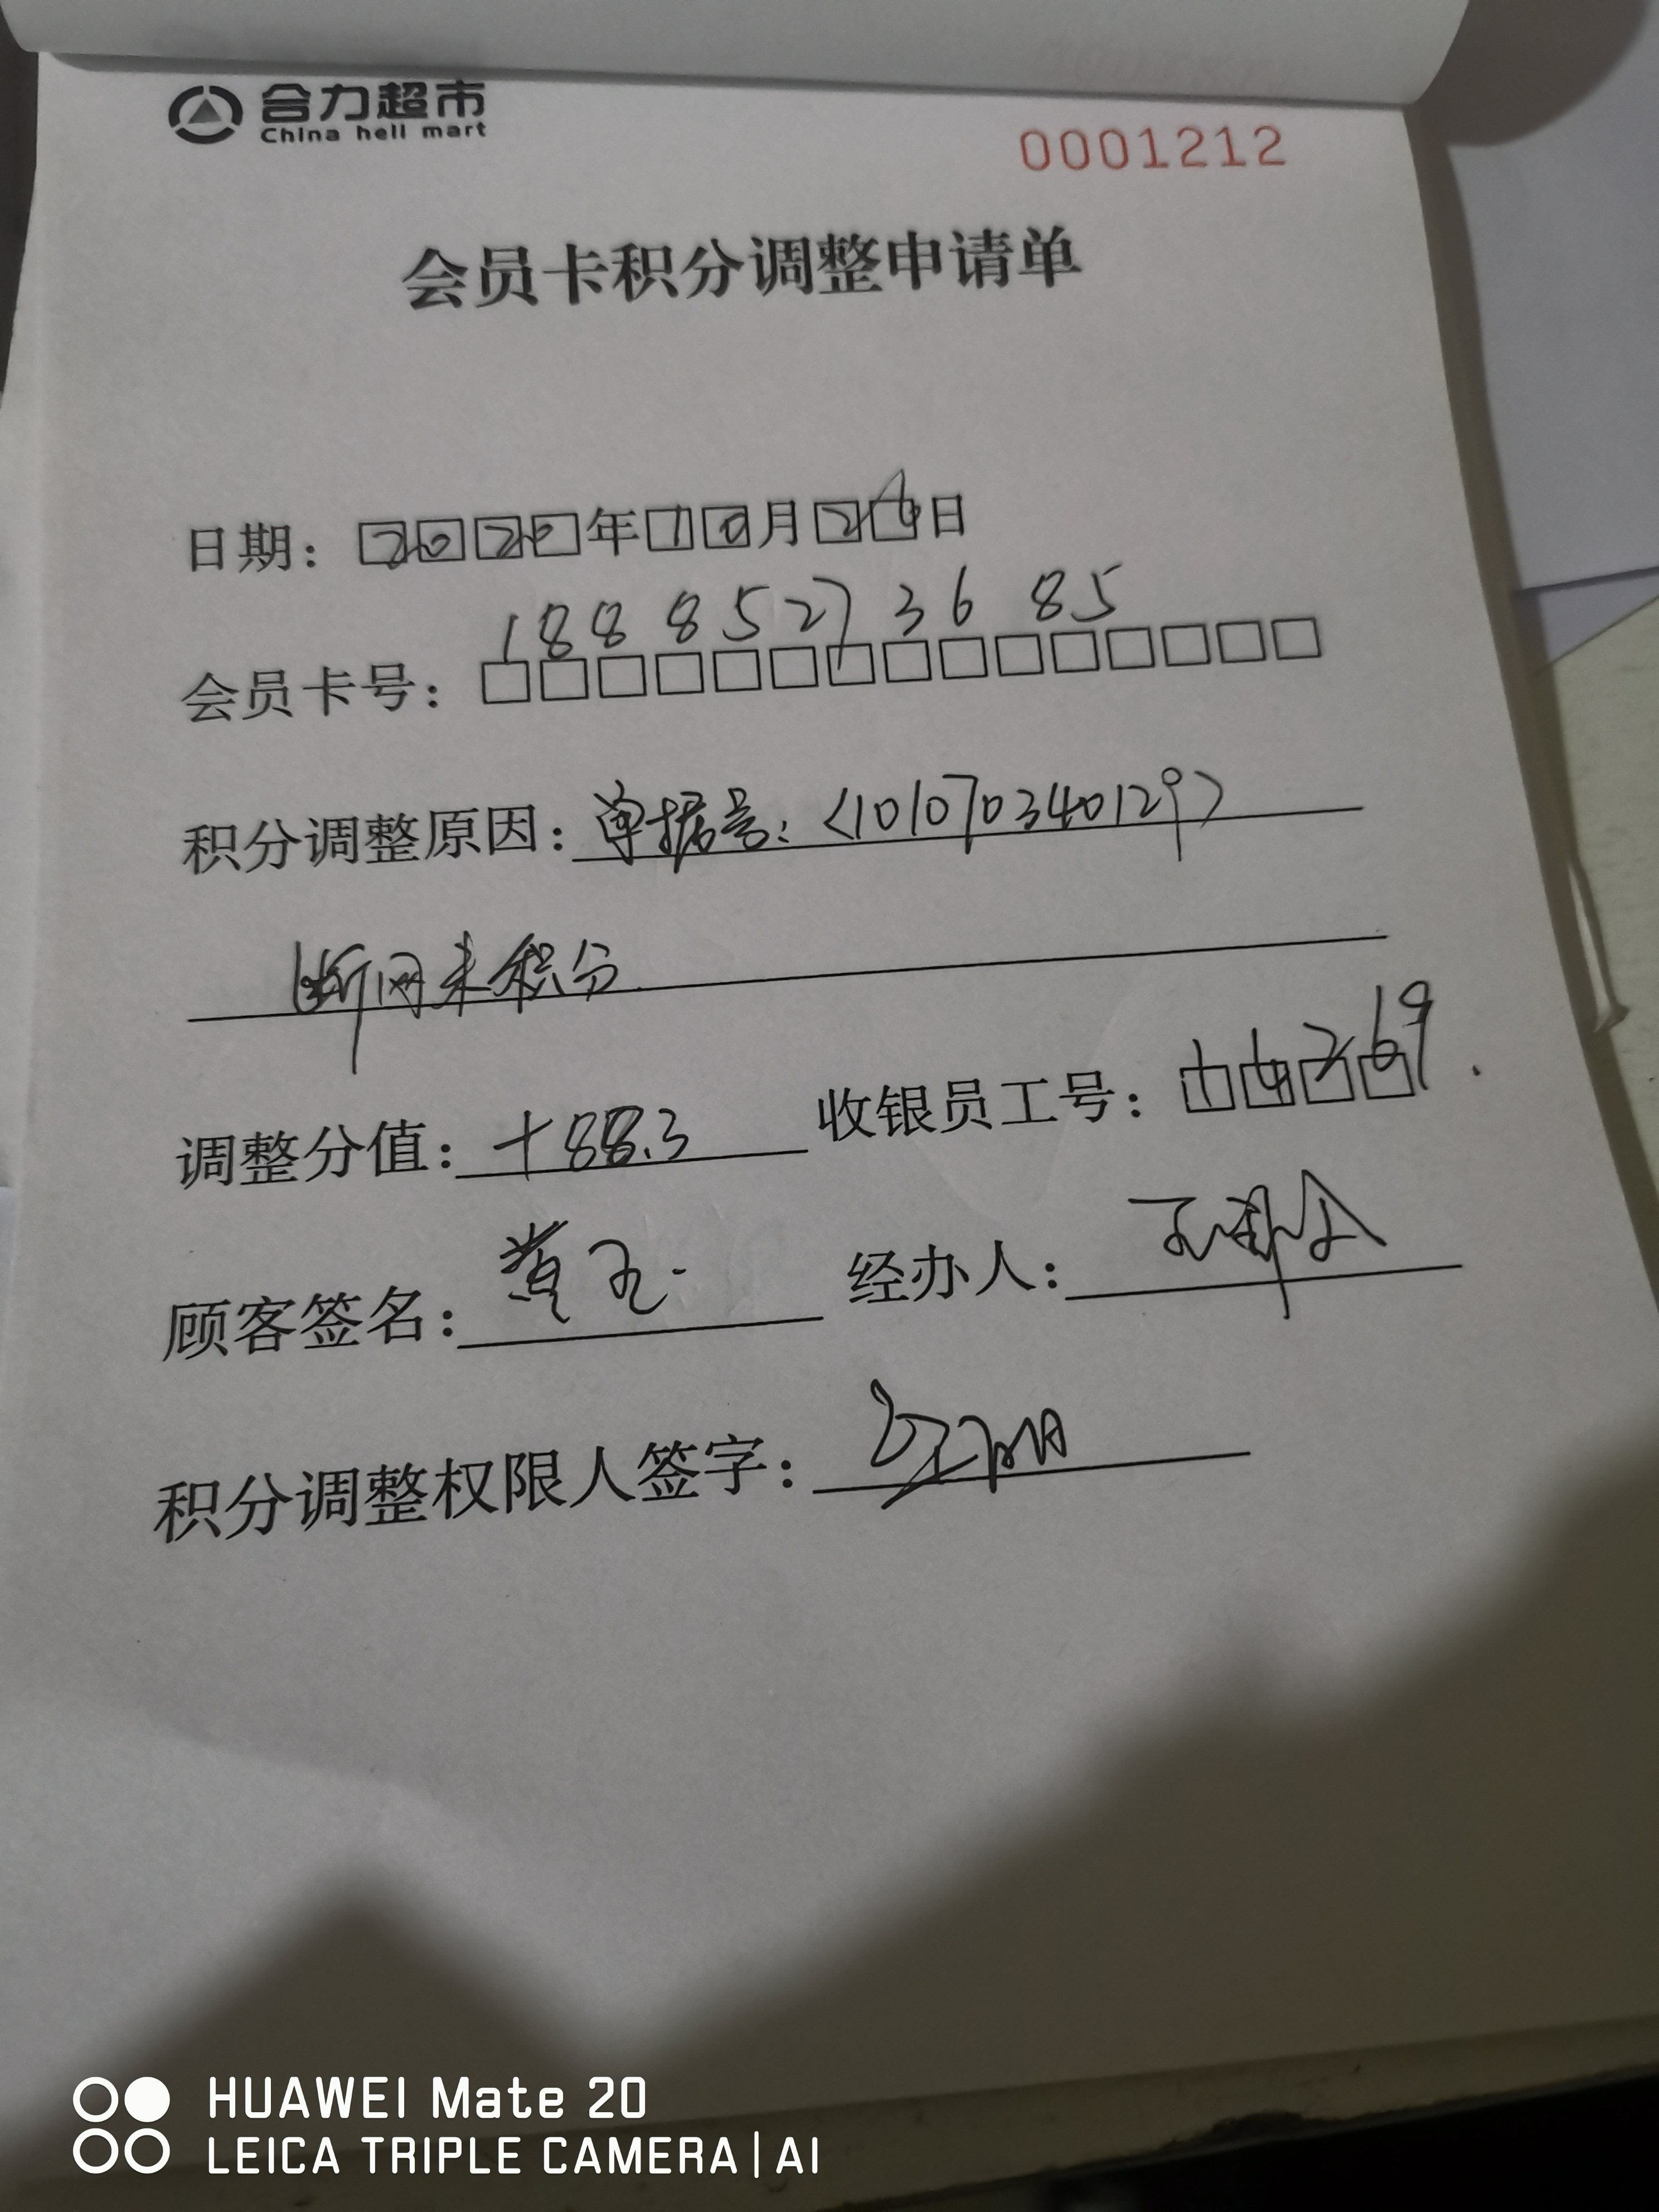 合力超市
China heli mart
0001212
会员卡积分调整申请单
日期：2020年10月26日
会员卡号：18885273685
积分调整原因：单据号：<101070340129>
断网未积分
调整分值：+88.3 收银员工号：14269
顾客签名：黄 经办人：
积分调整权限人签字：
HUAWEI Mate 20
LEICA TRIPLE CAMERA | AI